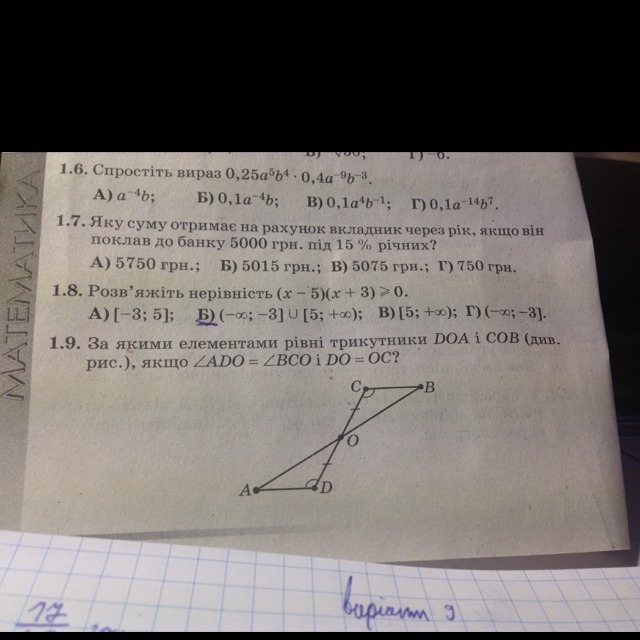 МАТЕМАТИКА
1.6. Спростіть вираз 0,25a⁵b⁴ · 0,4a⁻⁹b⁻³.
А) a⁻⁴b; Б) 0,1a⁻⁴b; В) 0,1a⁴b⁻¹; Г) 0,1a⁻¹⁴b⁷.
1.7. Яку суму отримає на рахунок вкладник через рік, якщо він
поклав до банку 5000 грн. під 15 % річних?
А) 5750 грн.; Б) 5015 грн.; В) 5075 грн.; Г) 750 грн.
1.8. Розв’яжіть нерівність (x − 5)(x + 3) ⩾ 0.
А) [−3; 5]; Б) (−∞; −3] ∪ [5; +∞); В) [5; +∞); Г) (−∞; −3].
1.9. За якими елементами рівні трикутники DOA і COB (див.
рис.), якщо ∠ADO = ∠BCO і DO = OC?
C B
O
A D
17
варіант 9